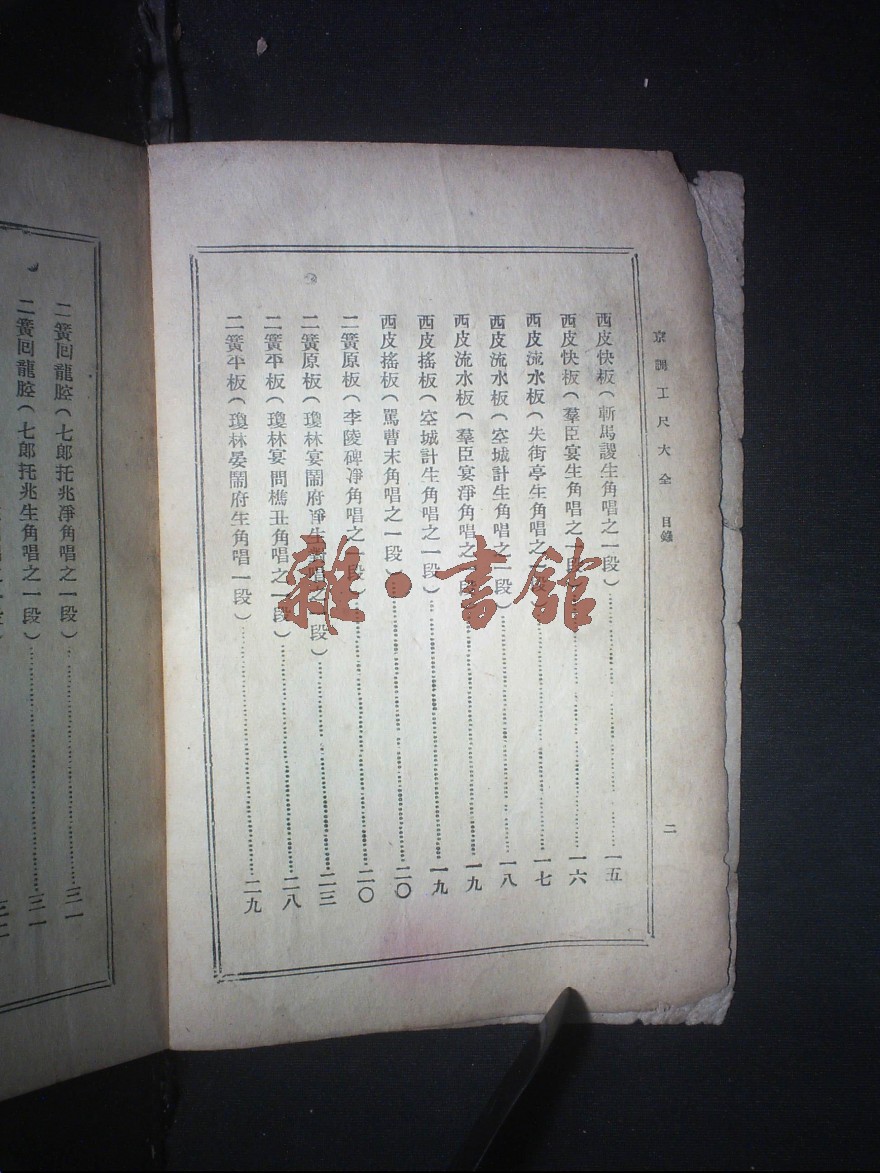 京調工尺大全 目錄
二
西皮快板(斬馬謖生角唱之一段)一五
西皮快板(羣臣宴生角唱之一段)一六
西皮流水板(失街亭生角唱之一段)一七
西皮流水板(空城計生角唱之一段)一八
西皮流水板(羣臣宴淨角唱之一段)一九
西皮搖板(空城計生角唱之一段)一九
西皮搖板(罵曹末角唱之一段)二〇
二簧原板(李陵碑淨角唱之一段)二〇
二簧原板(瓊林宴鬧府淨生唱之一段)二三
二簧平板(瓊林宴問樵丑角唱之一段)二八
二簧平板(瓊林宴鬧府生角唱一段)二九
二簧回龍腔(七郎托兆淨角唱之一段)三一
二簧回龍腔(七郎托兆生角唱之一段)三一
雜·書館